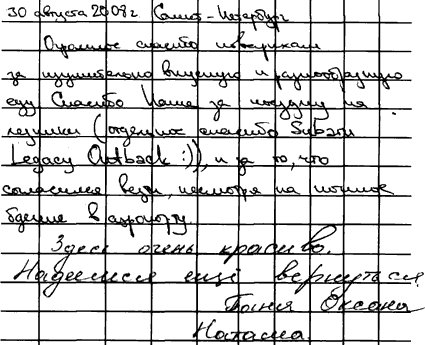 30 августа 2008г Санкт-Петербург
Огромное спасибо поварихам
за изумительно вкусную и разнообразную
еду Спасибо за поездку на
(отдельное спасибо Subaru
Legacy Outback :)), и за то, что
согласился везти, несмотря на ночное
бдение в аэропорту
Здесь очень красиво.
Надеемся ещё вернуться
Таня Оксана
Наташа